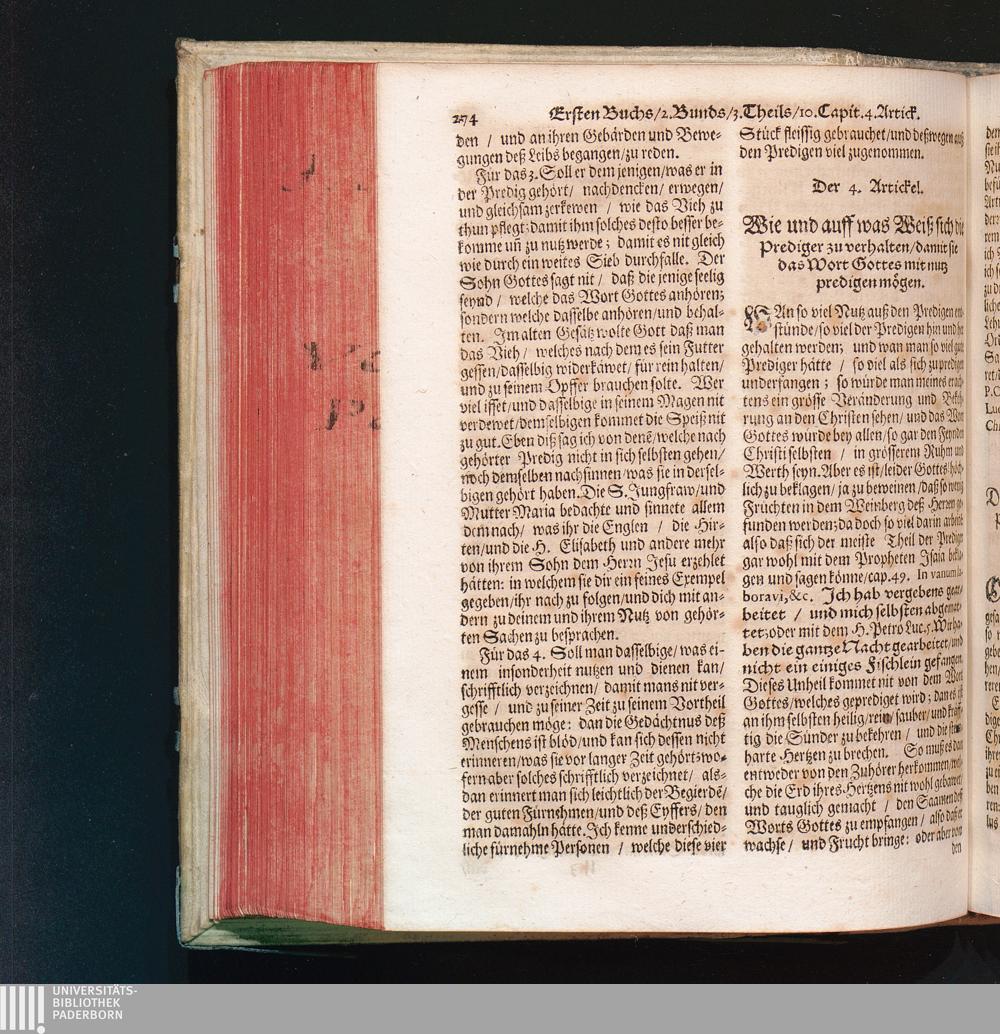 274 Ersten Buchs/2.Bunds/3.Theils/10.Capit.4.Artick.
den / und an ihren Gebärden und Bewe-
gungen deß Leibs begangen/zu reden.
Für das 3. Soll er dem jenigen/was er in
der Predig gehört/ nachdencken/ erwegen/
und gleichsam zerkewen / wie das Vieh zu
thun pflegt; damit ihm solches desto besser be-
komme uñ zu nutz werde; damit es nit gleich
wie durch ein weites Sieb durchfalle. Der
Sohn Gottes sagt nit / daß die jenige seelig
seynd / welche das Wort Gottes anhören;
sondern welche dasselbe anhören/und behal-
ten. Im alten Gesätz wolte Gott daß man
das Vieh / welches nach dem es sein Futter
gessen/dasselbig widerkäwet/ für rein halten/
und zu seinem Opffer brauchen solte. Wer
viel isset/und dasselbige in seinem Magen nit
verdewet/demselbigen kommet die Speiß nit
zu gut. Eben diß sag ich von denẽ/welche nach
gehörter Predig nicht in sich selbsten gehen/
noch demselben nachsinnen/was sie in dersel-
bigen gehört haben. Die S. Jungfraw/und
Mutter Maria bedachte und sinnete allem
dem nach/ was ihr die Englen / die Hir-
ten/und die H. Elisabeth und andere mehr
von ihrem Sohn dem Herrn Jesu erzehlet
hätten: in welchem sie dir ein feines Exempel
gegeben/ihr nach zu folgen/und dich mit an-
dern zu deinem und ihrem Nutz von gehör-
ten Sachen zu besprachen.
Für das 4. Soll man dasselbige/was ei-
nem insonderheit nutzen und dienen kan/
schrifftlich verzeichnen/ damit mans nit ver-
gesse / und zu seiner Zeit zu seinem Vortheil
gebrauchen möge: dan die Gedächtnus deß
Menschens ist blöd/und kan sich dessen nicht
erinneren/was sie vor langer Zeit gehört; wo-
fern aber solches schrifftlich verzeichnet/ als-
dan erinnert man sich leichtlich der Begierdẽ/
der guten Fürnehmen/und deß Eyffers/ den
man damahln hätte. Ich kenne underschied-
liche fürnehme Personen / welche diese vier
Stück fleissig gebrauchet/und deßwegen auß
den Predigen viel zugenommen.
Der 4. Artickel.
Wie und auff was Weiß sich die
Prediger zu verhalten/damit sie
das Wort Gottes mit nutz
predigen mögen.
WAn so viel Nutz auß den Predigen ent-
stünde/so viel der Predigen hin und her
gehalten werden; und wan man so viel gute
Prediger hätte / so viel als sich zu predigen
underfangen; so würde man meines erach-
tens ein grösse Veränderung und Bekeh-
rung an den Christen sehen/ und das Wort
Gottes würde bey allen/so gar den Feynden
Christi selbsten / in grösserem Ruhm und
Werth seyn. Aber es ist/leider Gottes! höch-
lich zu beklagen/ ja zu beweinen /daß so wenig
Früchten in dem Weinberg deß Herren ge-
funden werden; da doch so viel darin arbeite
also daß sich der meiste Theil der Prediger
gar wohl mit dem Propheten Isaia bekla-
gen und sagen könne/cap.49. In vanum la-
boravi,&c. Ich hab vergebens gear-
beitet / und mich selbsten abgemat-
tet; oder mit dem H. Petro Luc.5. Wir ha-
ben die gantze Nacht gearbeitet/und
nicht ein einiges Fischlein gefangen.
Dieses Unheil kommet nit von dem Wort
Gottes/welches geprediget wird; dan es ist
an ihm selbsten heilig/rein/sauber/und kräff-
tig die Sünder zu bekehren / und die
harte Hertzen zu brechen. So muß es dan
entweder von den Zuhörer herkommen/wel-
che die Erd ihres Hertzens nit wohl gebawet
und tauglich gemacht / den Saamen deß
Worts Gottes zu empfangen / also daß er
wachse / und Frucht bringe: oder aber von
den
UNIVERSITÄTS-
BIBLIOTHEK
PADERBORN